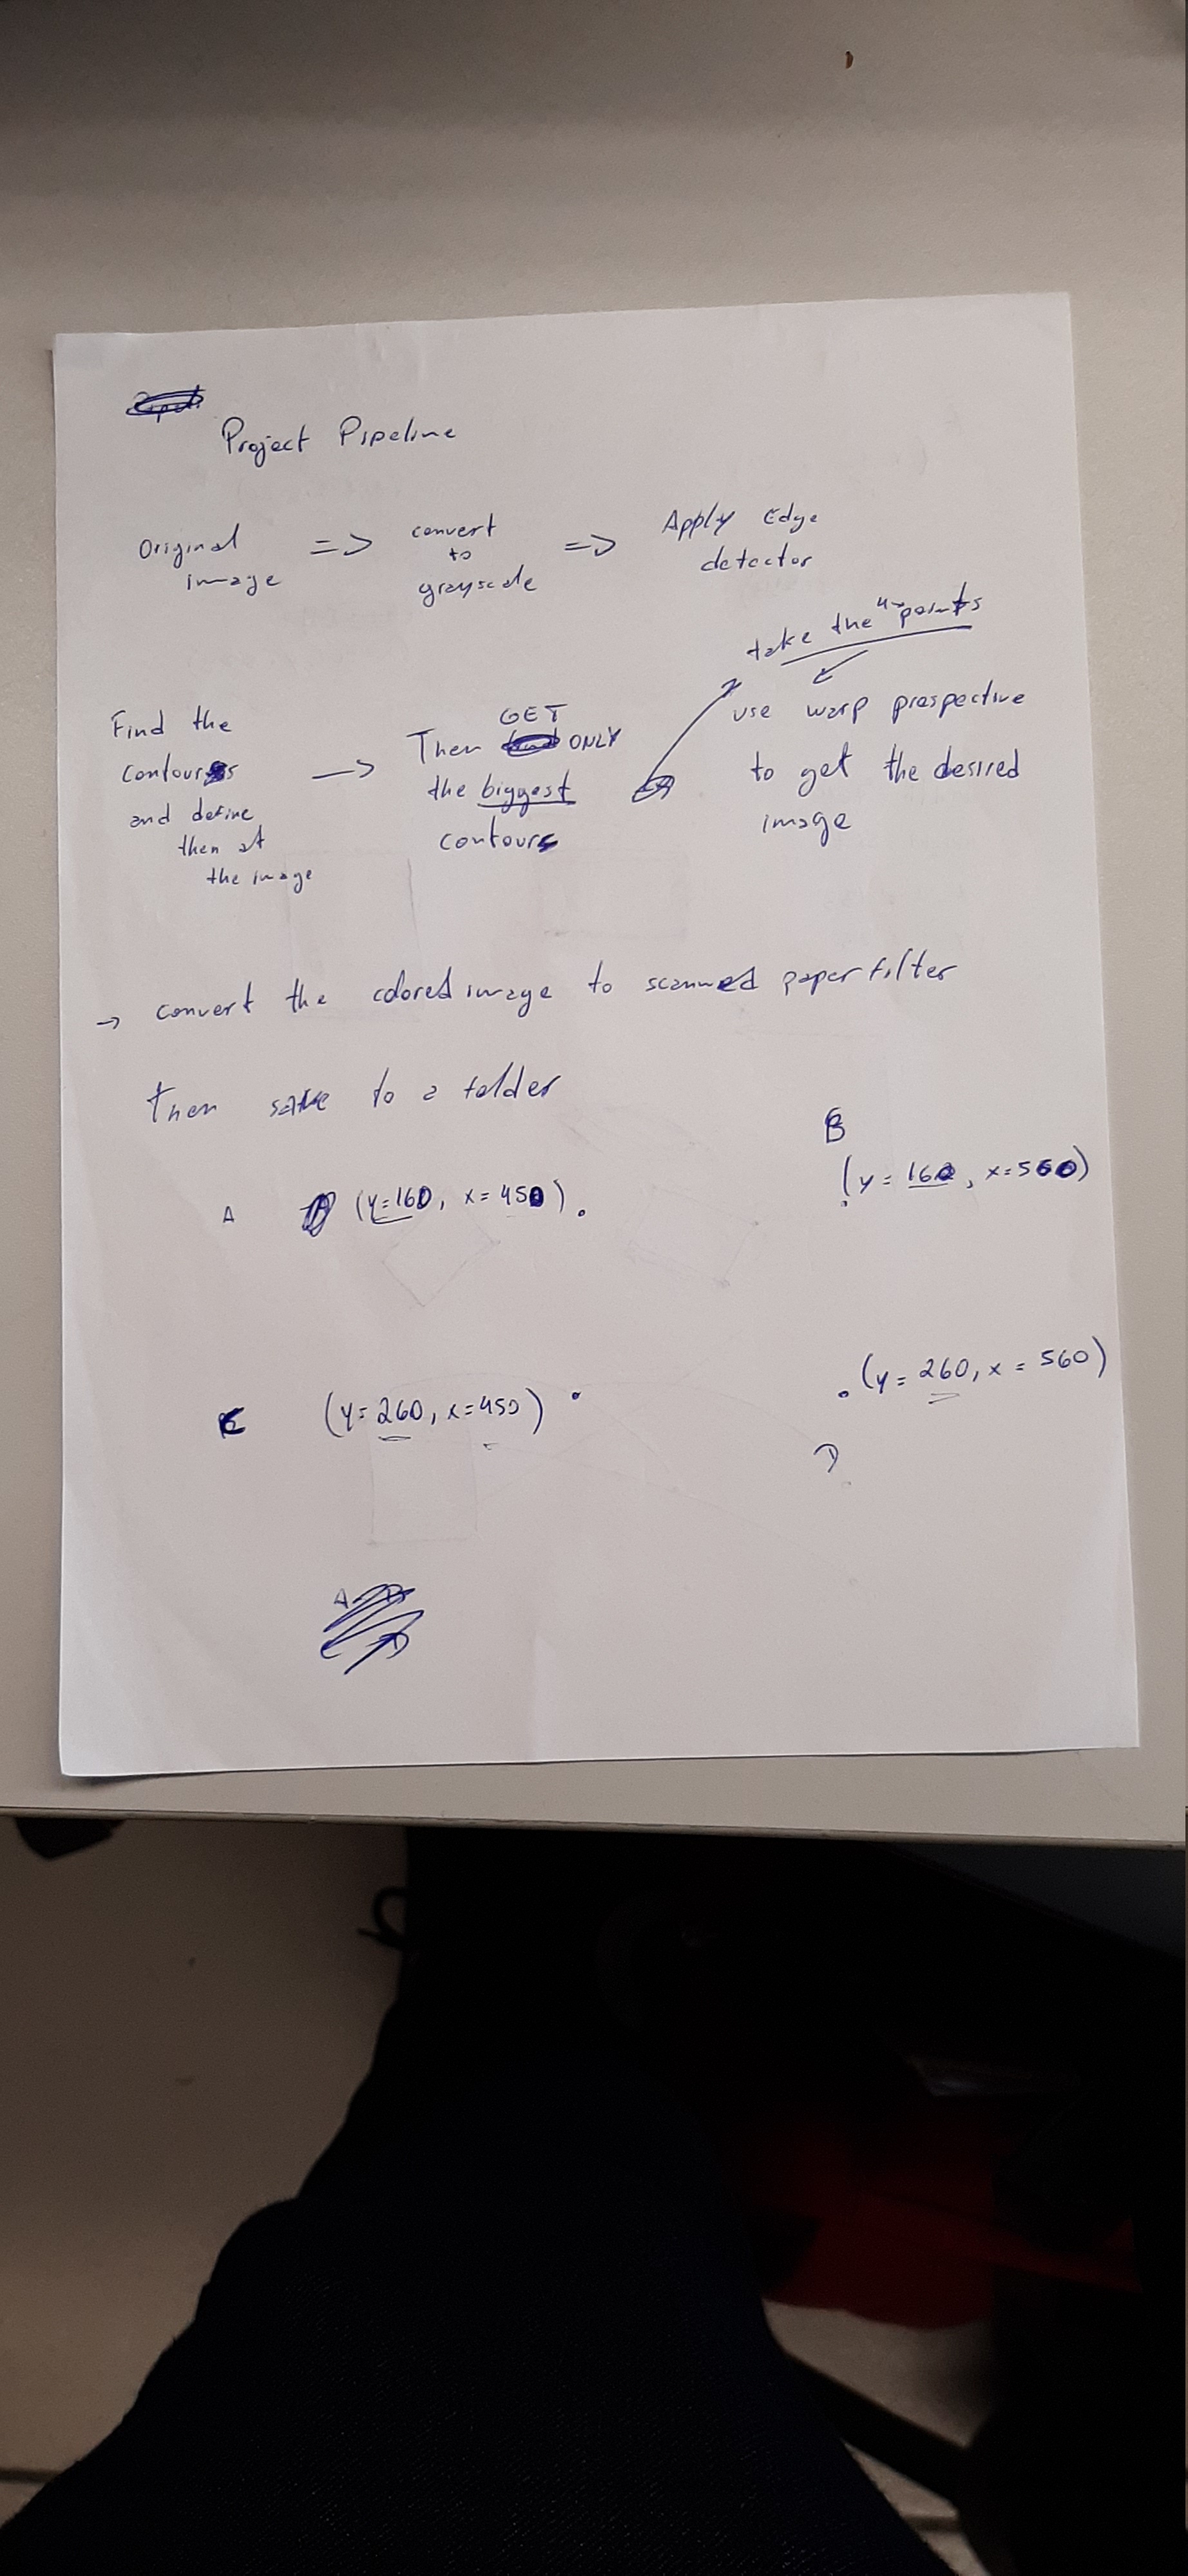 Project Pipeline
Original image => convert to grayscale => Apply Edge detector
take the 4 points
Find the contours and define then at the image -> Then GET ONLY the biggest contours
use warp prospective to get the desired image
-> convert the colored image to scanned paper filter
then save to a folder
B
A (y=160, x=450) (y=160, x=560)
C (y=260, x=450) (y=260, x=560)
D
A